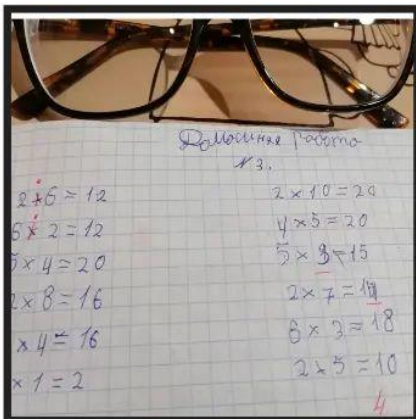 Домашняя работа
№ 3.
2 × 6 = 12
6 × 2 = 12
5 × 4 = 20
2 × 8 = 16
× 4 = 16
× 1 = 2
2 × 10 = 20
4 × 5 = 20
5 × 3 = 15
2 × 7 = 14
6 × 3 = 18
2 × 5 = 10
4